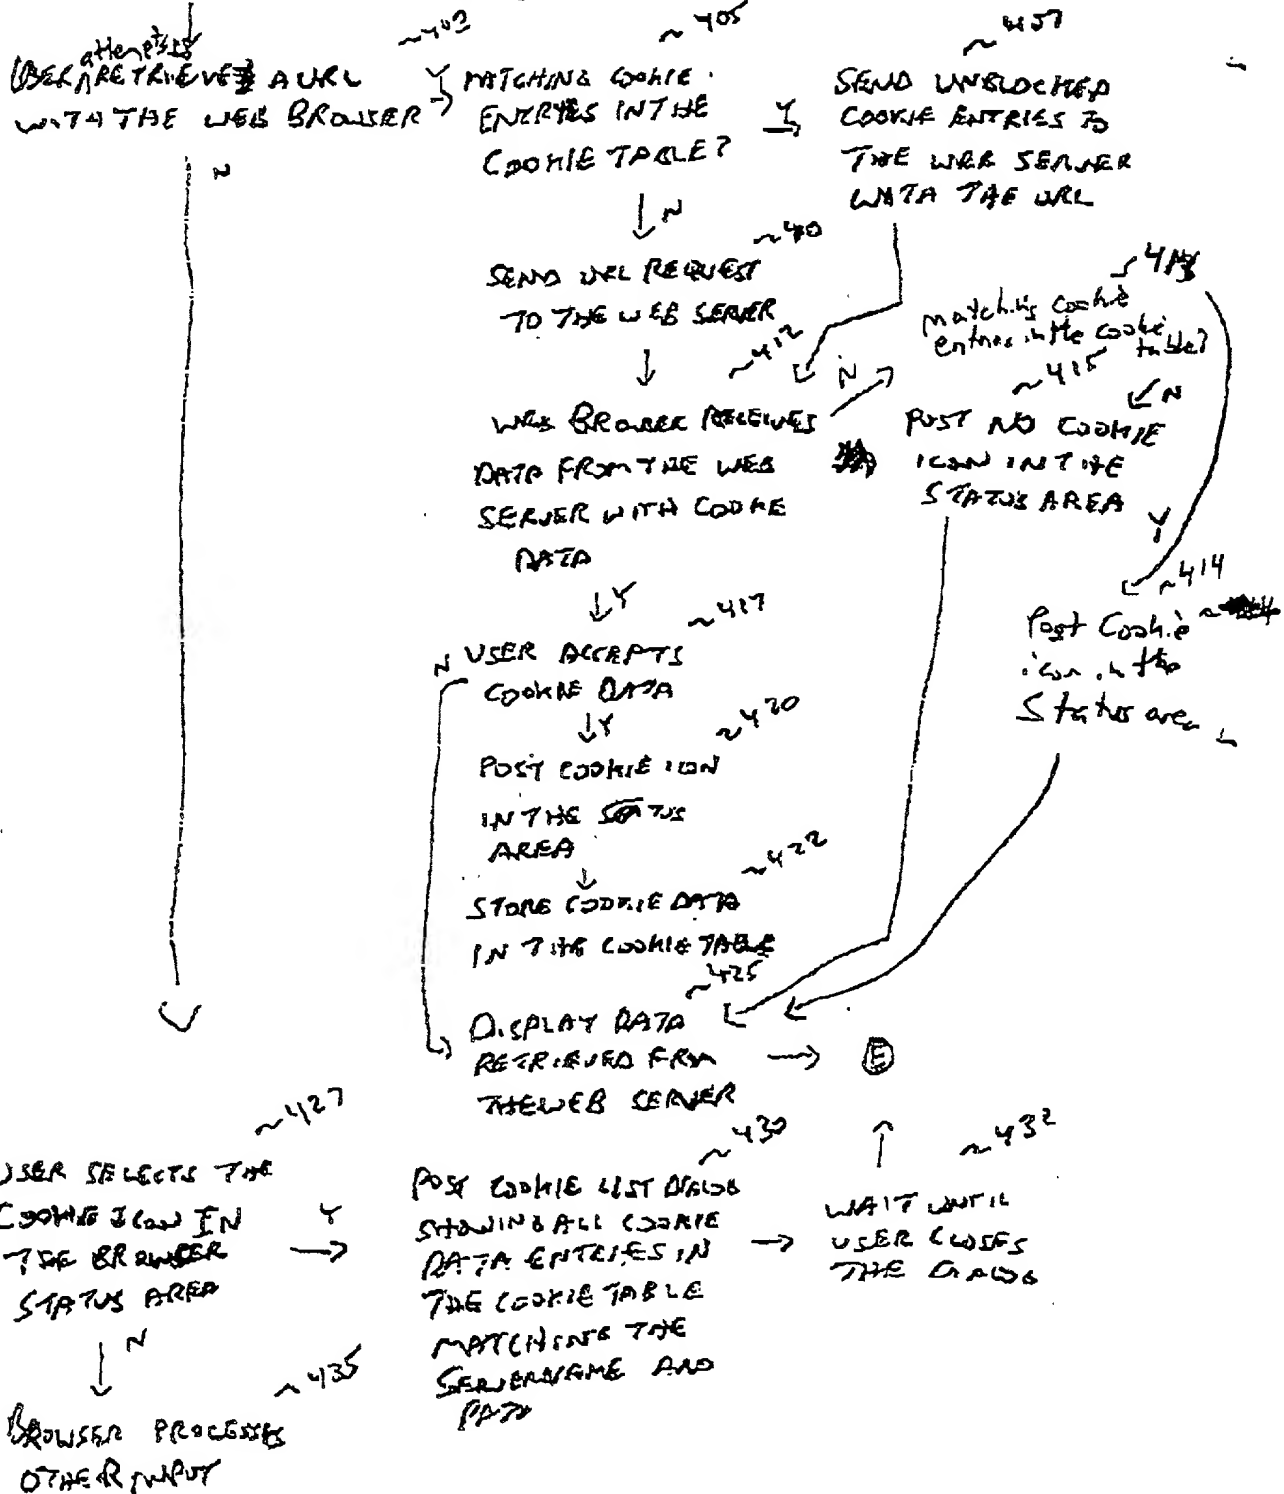 ~402
attempts to
USER ^ RETRIEVES A URL
WITH THE WEB BROWSER
Y
N
~405
MATCHING COOKIE
ENTRYES IN THE
COOKIE TABLE?
Y
N
~407
SEND UNBLOCKED
COOKIE ENTRIES TO
THE WEB SERVER
WITH THE URL
~410
SEND URL REQUEST
TO THE WEB SERVER
~412
WEB BROWSER RECEIVES
DATA FROM THE WEB
SERVER WITH COOKIE
DATA
N
Y
413
matching cookie
entries in the cookie
table?
N
Y
~415
POST NO COOKIE
ICON IN THE
STATUS AREA
~414
Post Cookie
icon in the
Status area
~417
USER ACCEPTS
COOKIE DATA
N
Y
~420
POST COOKIE ICON
IN THE STATUS
AREA
~422
STORE COOKIE DATA
IN THE COOKIE TABLE
~425
DISPLAY DATA
RETRIEVED FROM
THE WEB SERVER
E
~427
USER SELECTS THE
COOKIE ICON IN
THE BROWSER
STATUS AREA
Y
N
~430
POST COOKIE LIST DIALOG
SHOWING ALL COOKIE
DATA ENTRIES IN
THE COOKIE TABLE
MATCHING THE
SERVERNAME AND
PATH
~432
WAIT UNTIL
USER CLOSES
THE DIALOG
~435
BROWSER PROCESSES
OTHER INPUT